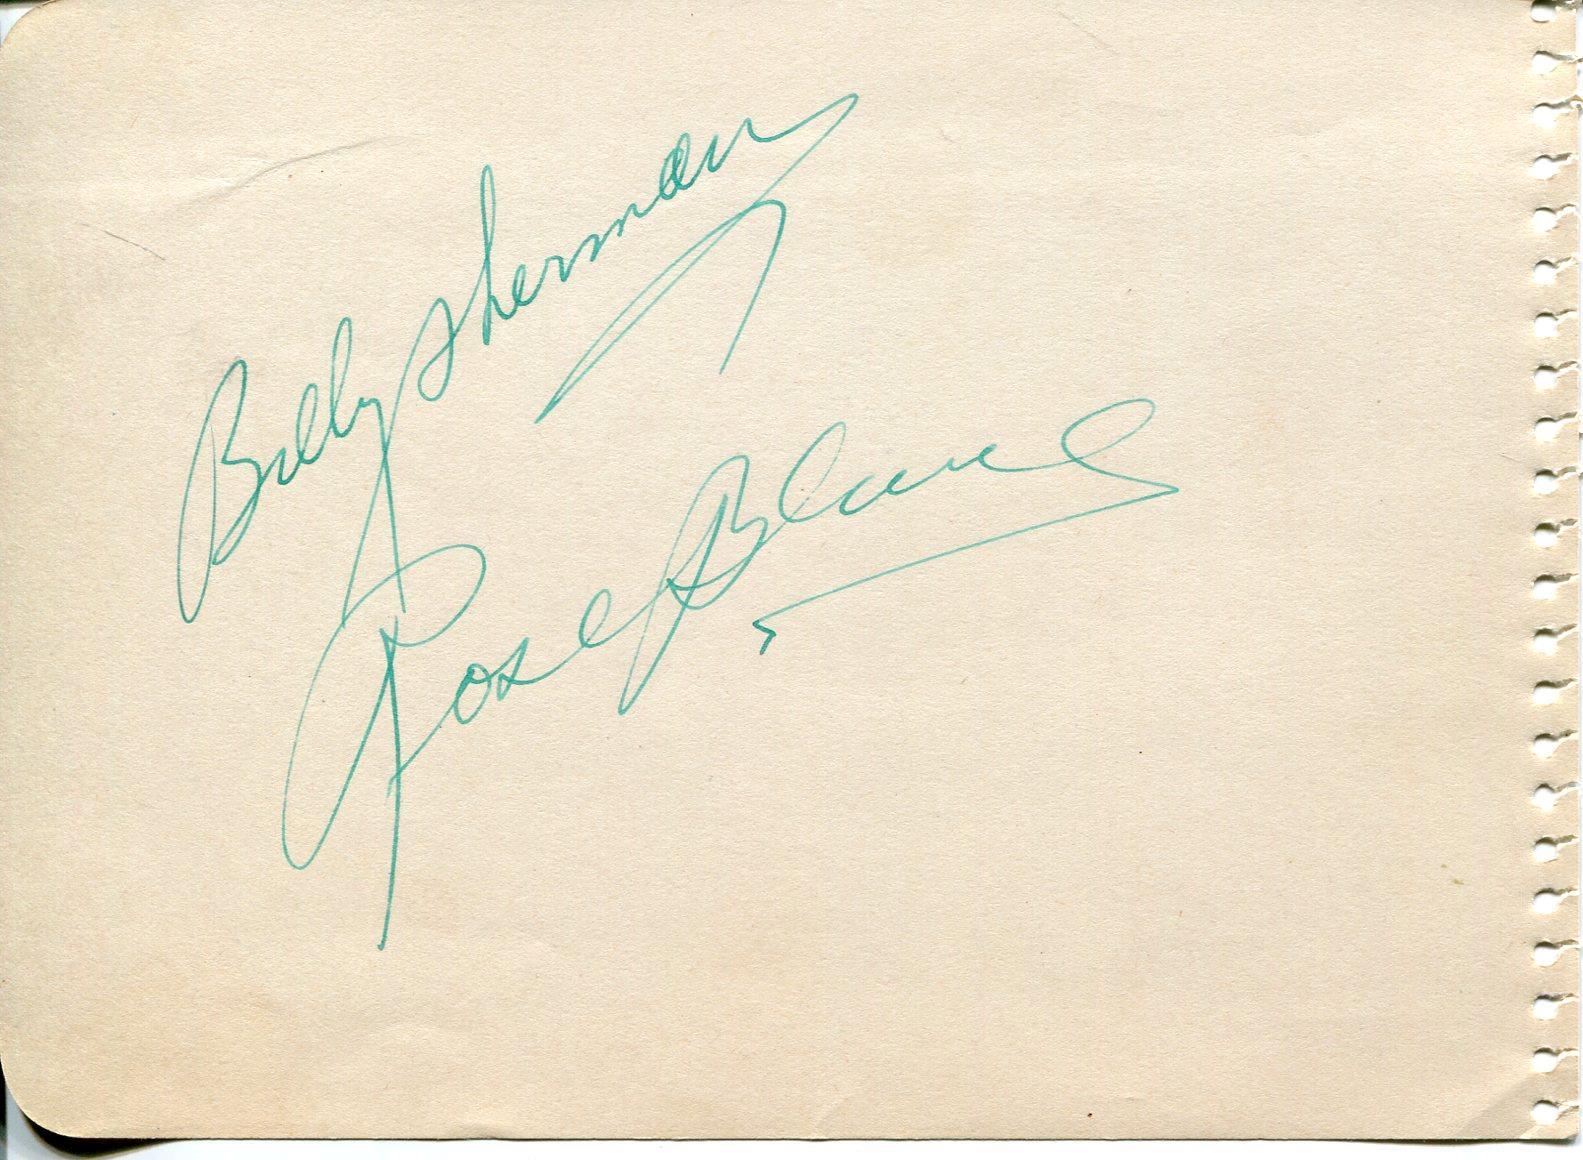 Billy Sherman
Rose Blane